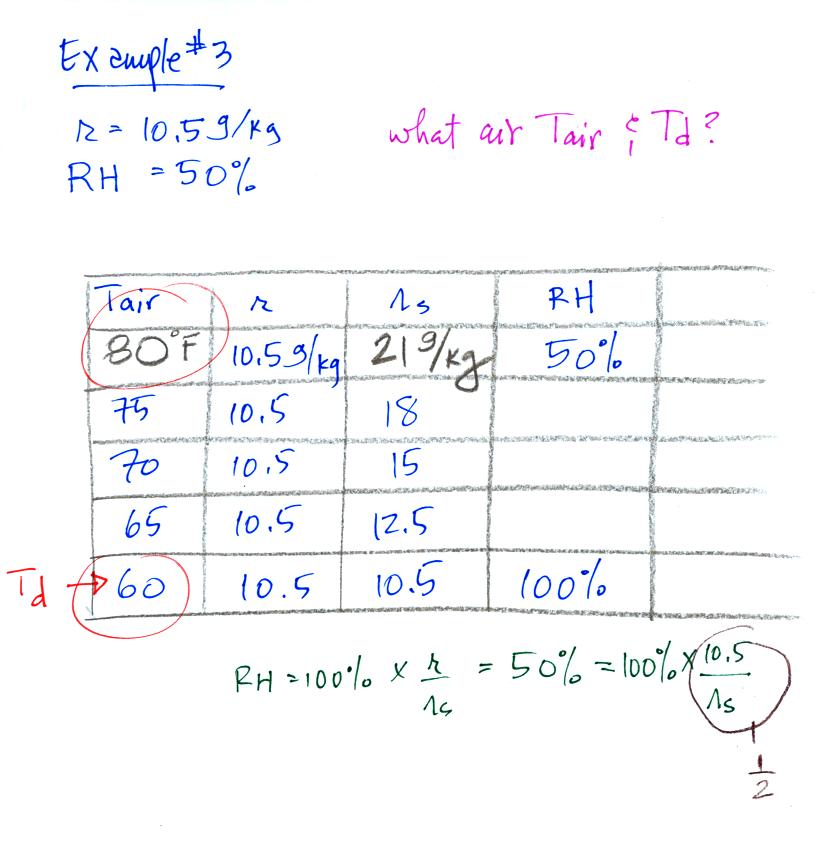 Example #3
r = 10.5 g/kg
what air Tair & Td?
RH = 50%
Tair r rs RH
80°F 10.5 g/kg 21 g/kg 50%
75 10.5 18
70 10.5 15
65 10.5 12.5
Td → 60 10.5 10.5 100%
RH = 100% x r/rs = 50% = 100% x 10.5/rs
1/2